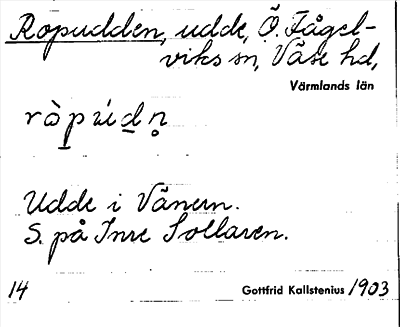 Ropudden, udde, Ö. Fågel-
viks sn, Väse hd,
Värmlands län
Udde i Vänern.
S. på Inre Sollaren.
14
Gottfrid Kallstenius 1903